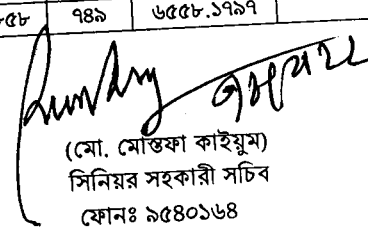 ৭৪৯ ৬৫৫৮.১৭৯৭
(মো. মোস্তফা কাইয়ুম)
সিনিয়র সহকারী সচিব
ফোনঃ ৯৫৪০১৬৪